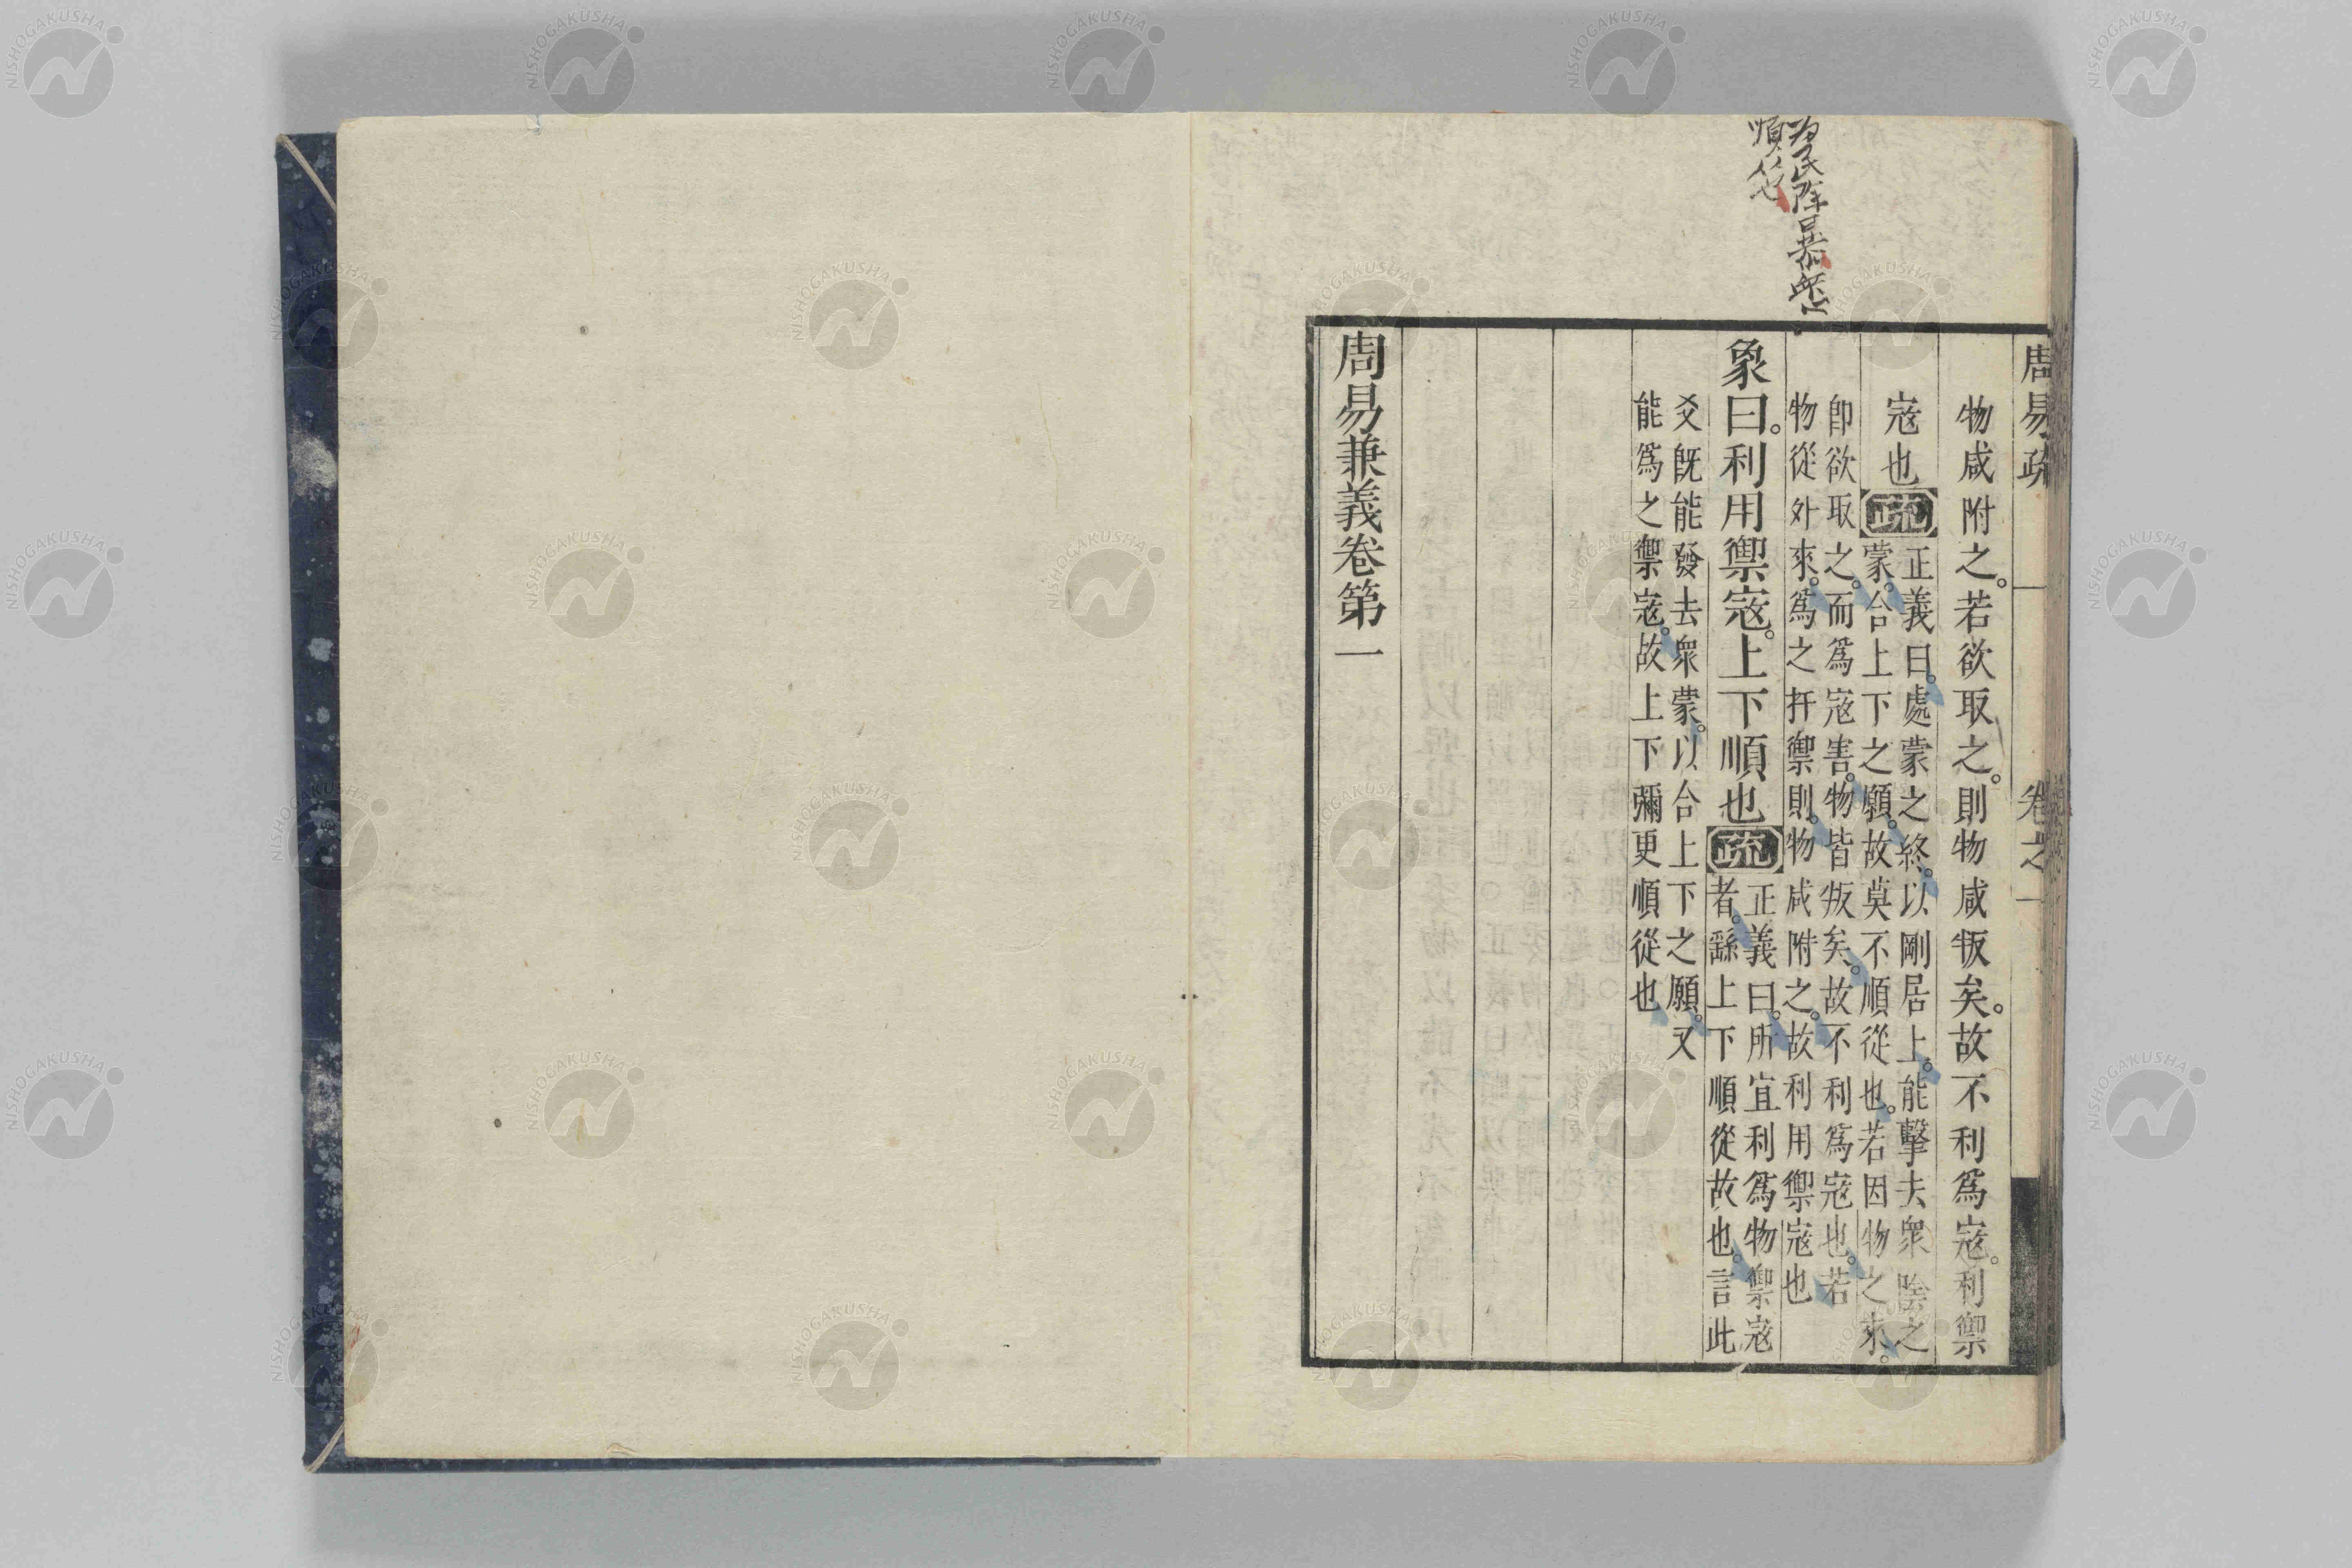 周易疏 卷之一
物咸附之。若欲取之。則物咸叛矣。故不利爲寇。利禦
寇也
疏
正義曰。處蒙之終。以剛居上。能擊去衆陰之
蒙。合上下之願。故莫不順從也。若因物之來。
卽欲取之。而爲寇害。物皆叛矣。故不利爲寇也。若
物從外來。爲之扞禦。則物咸附之。故利用禦寇也
象曰。利用禦寇。上下順也
疏
正義曰。所宜利爲物禦寇
者。繇上下順從故也。言此
爻既能發去衆蒙。以合上下之願。又
能爲之禦寇。故上下彌更順從也
周易兼義卷第一
為民除暴
順
NISHOGAKUSHA